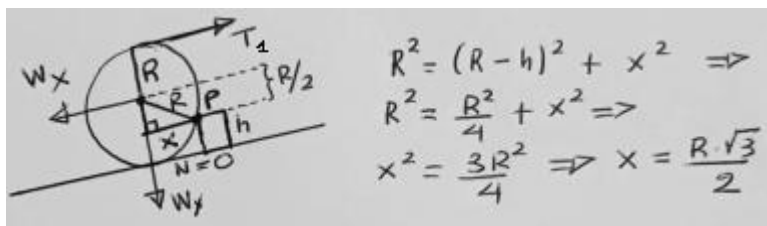 T₁
Wx
R
R
P
R/2
x
h
N=0
Wy
R² = (R - h)² + x² =>
R² = R²/4 + x² =>
x² = 3R²/4 => x = R·√3/2